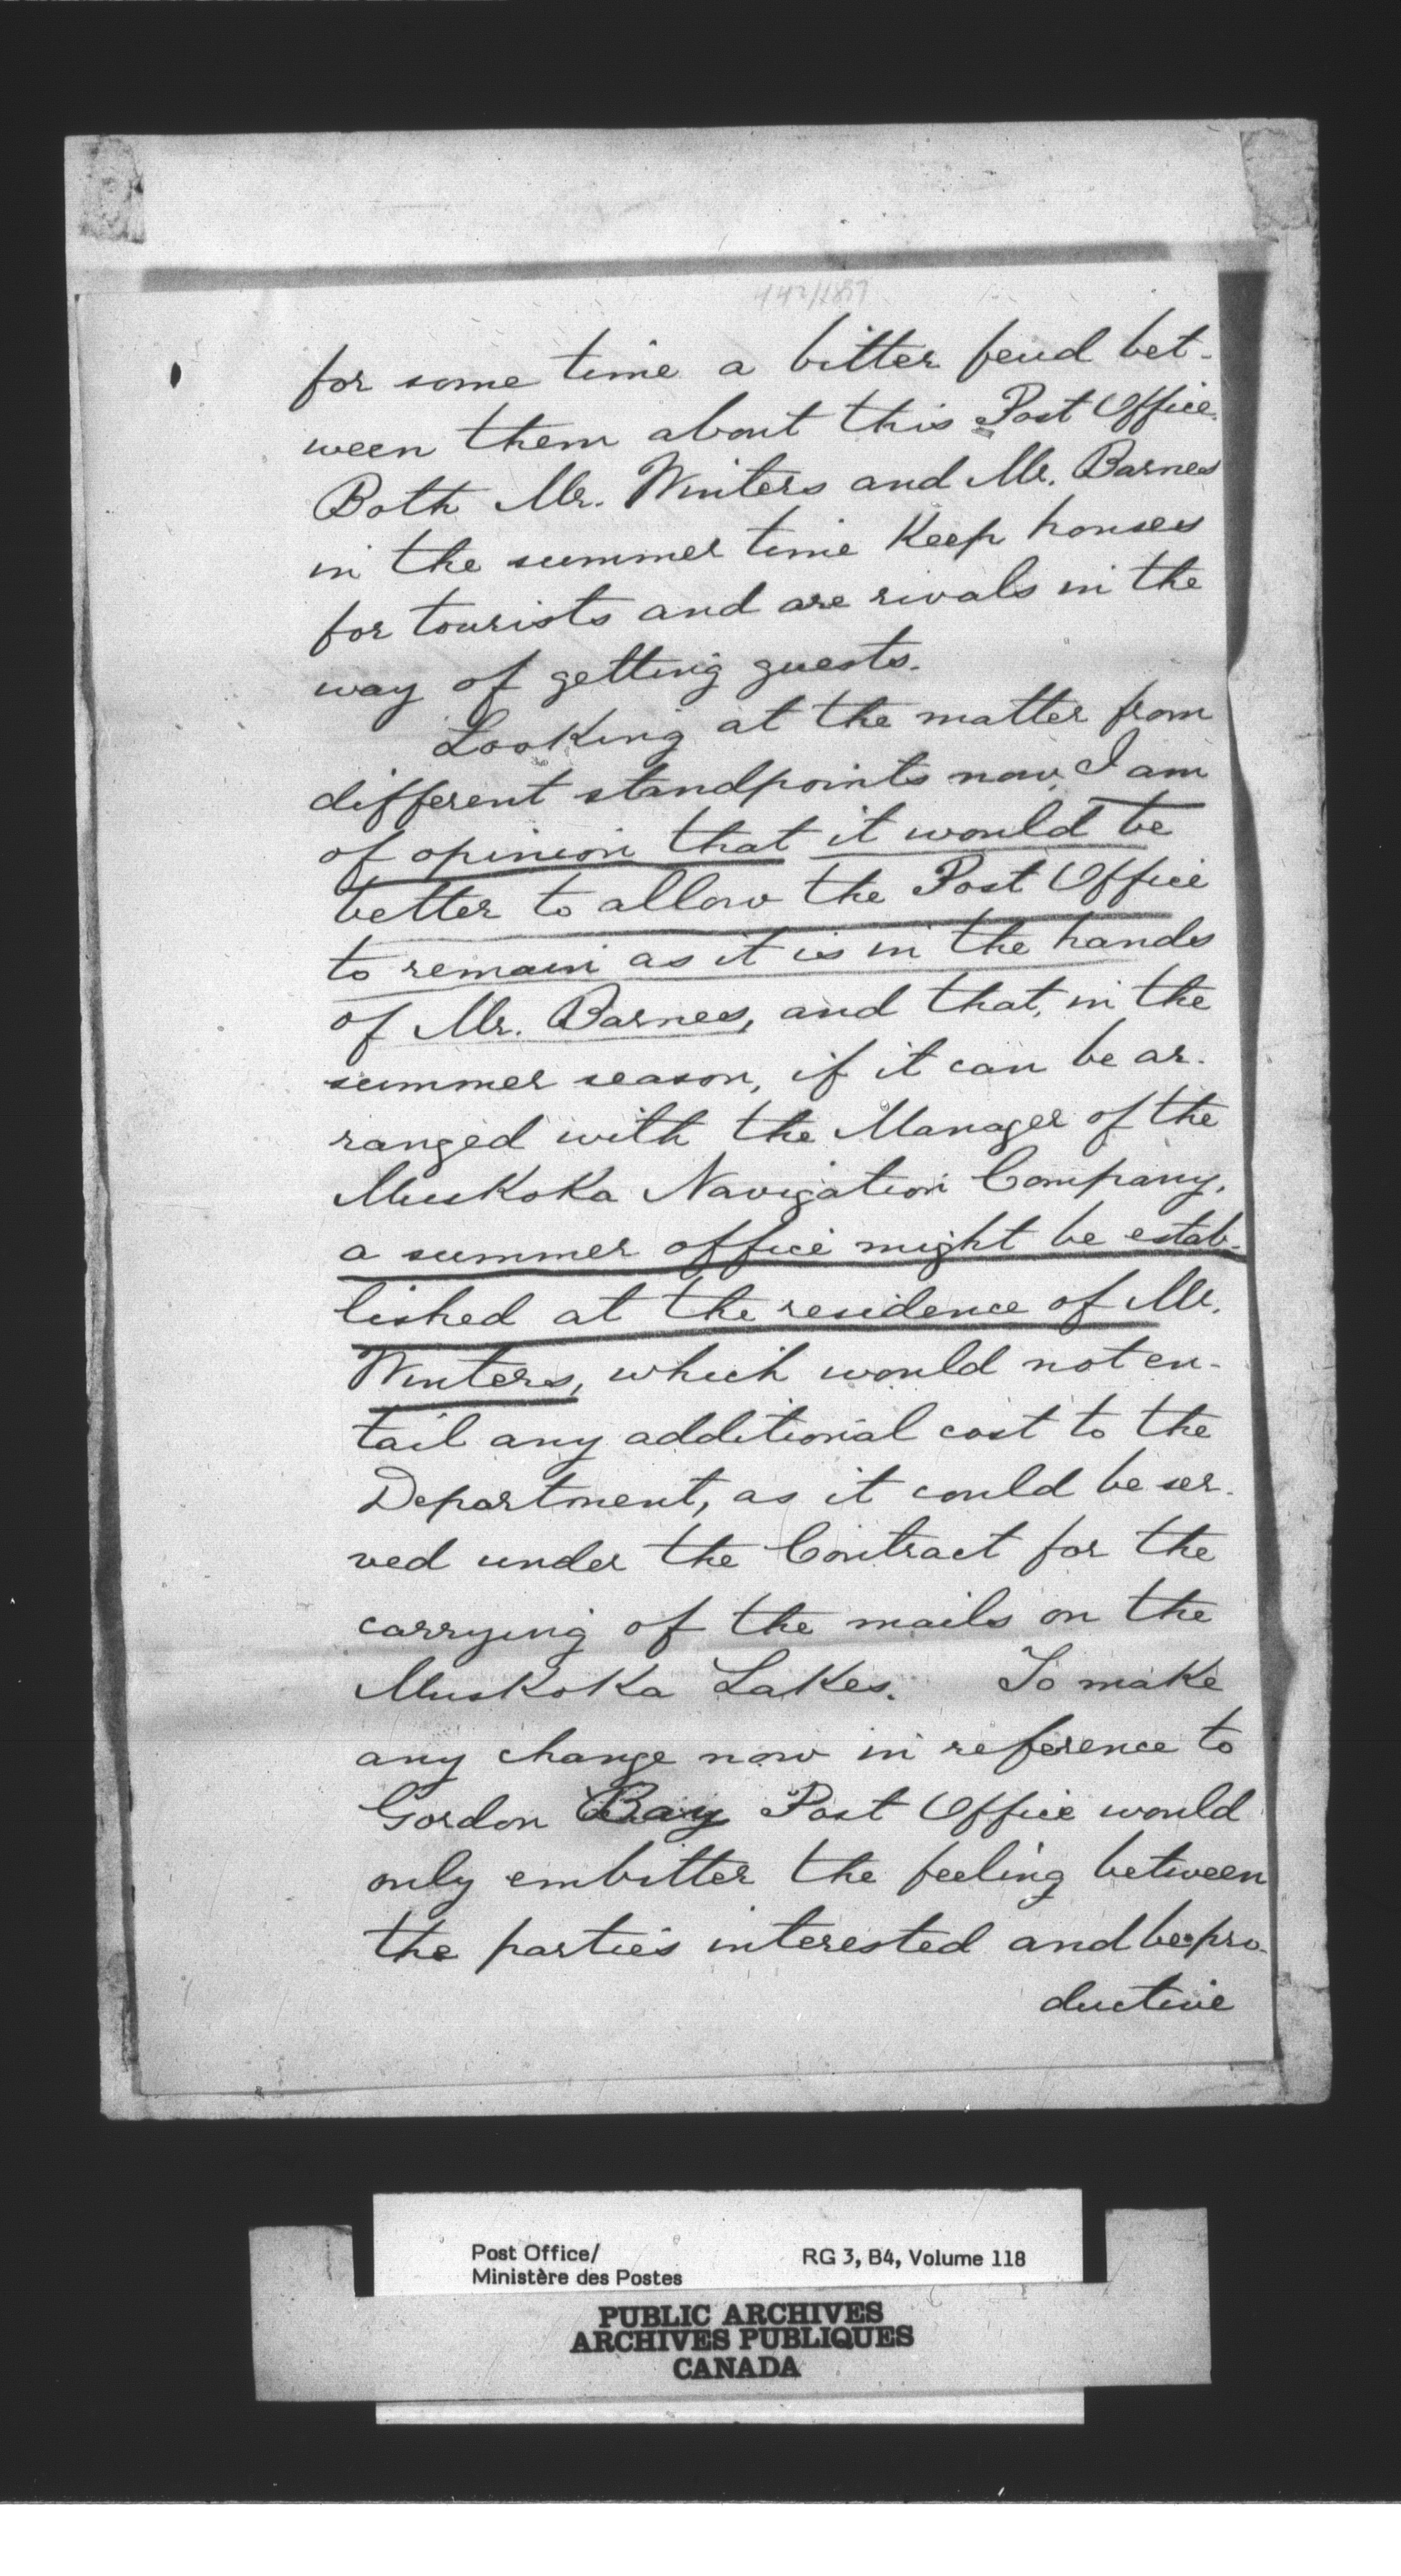 442/1897
for some time a bitter feud bet-
ween them about this Post Office.
Both Mr. Winters and Mr. Barnes
in the summer time Keep houses
for tourists and are rivals in the
way of getting guests.
Looking at the matter from
different standpoints now, I am
of opinion that it would be
better to allow the Post Office
to remain as it is in the hands
of Mr. Barnes, and that, in the
summer season, if it can be ar-
ranged with the Manager of the
Muskoka Navigation Company,
a summer office might be estab-
lished at the residence of Mr.
Winters, which would not en-
tail any additional cost to the
Department, as it could be ser-
ved under the Contract for the
carrying of the mails on the
Muskoka Lakes. To make
any change now in reference to
Gordon Bay Post Office would
only embitter the feeling between
the parties interested and be pro-
ductive
Post Office/
Ministère des Postes
RG 3, B4, Volume 118
PUBLIC ARCHIVES
ARCHIVES PUBLIQUES
CANADA